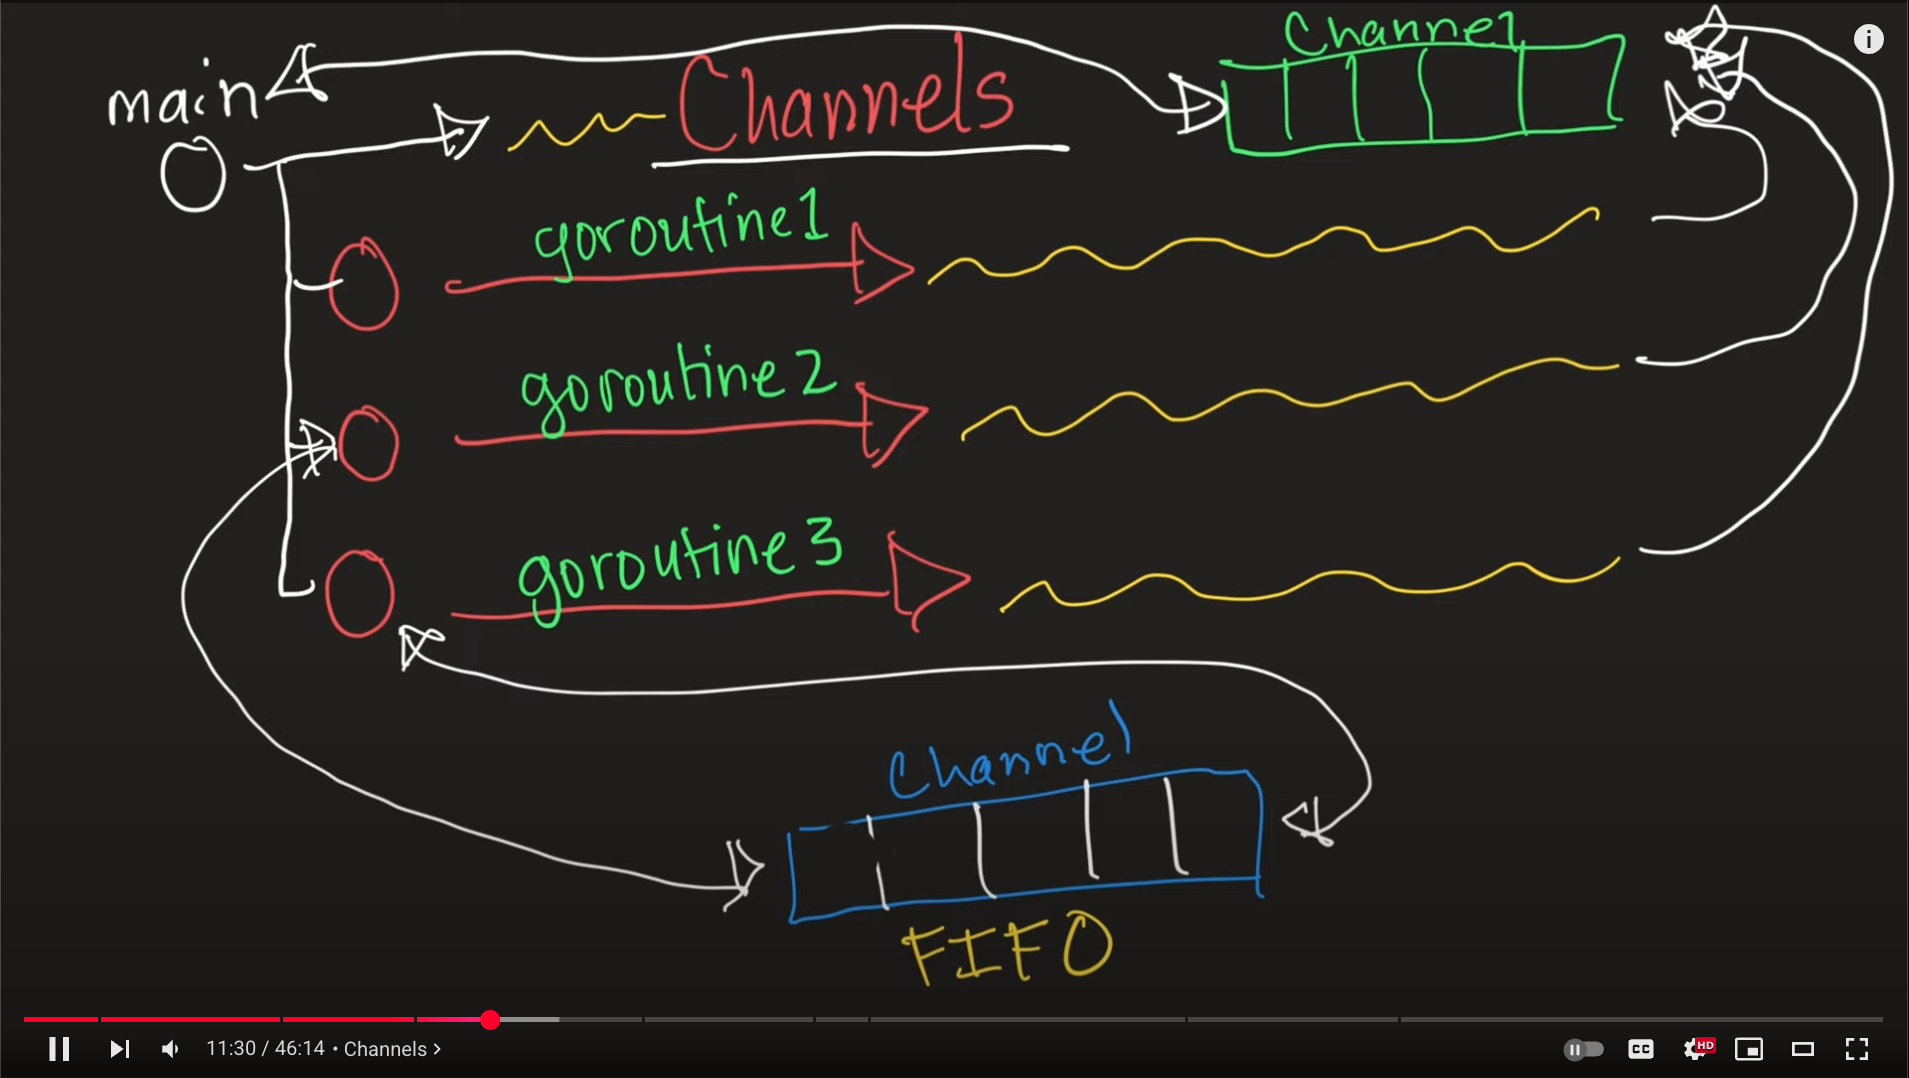 Channel
main
Channels
goroutine1
goroutine2
goroutine3
Channel
FIFO
11:30 / 46:14 • Channels >
CC
HD